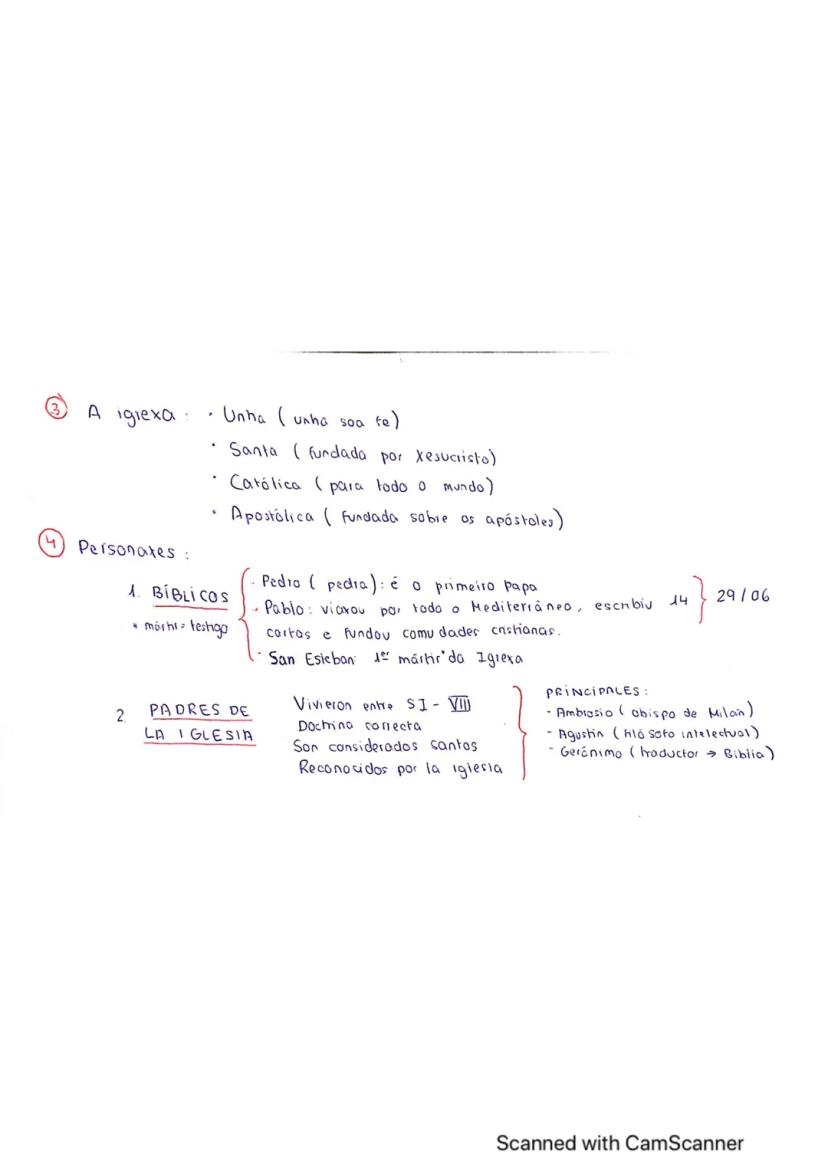 3 A igrexa : · Unha ( unha soa fe)
· Santa ( fundada por Xesucristo)
· Católica ( para todo o mundo)
· Apostólica ( fundada sobre os apóstoles)
4 Personaxes :
1. BÍBLICOS
* mártir = testigo
- Pedro ( pedra) : é o primeiro Papa
- Pablo : viaxou por todo o Mediterráneo, escribiu 14
cartas e fundou comu dades cristianas.
- San Esteban 1er mártir da Igrexa
29/06
2. PADRES DE
LA IGLESIA
Vivieron entre SI - VIII
Doctrina correcta
Son considerados santos
Reconocidos por la iglesia
PRINCIPALES :
- Ambrosio ( obispo de Milán)
- Agustín ( filósofo intelectual)
- Gerónimo ( traductor → Biblia)
Scanned with CamScanner